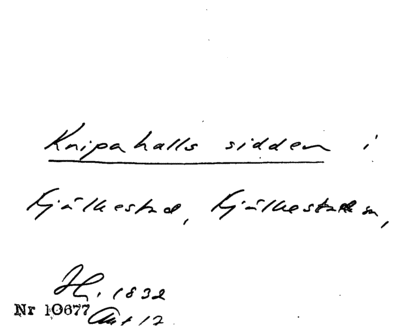 Knipahalls sidden i
Kjälkestad, Kjälkestad sn,
Hl. 1832
Nr 10677 Akt 12